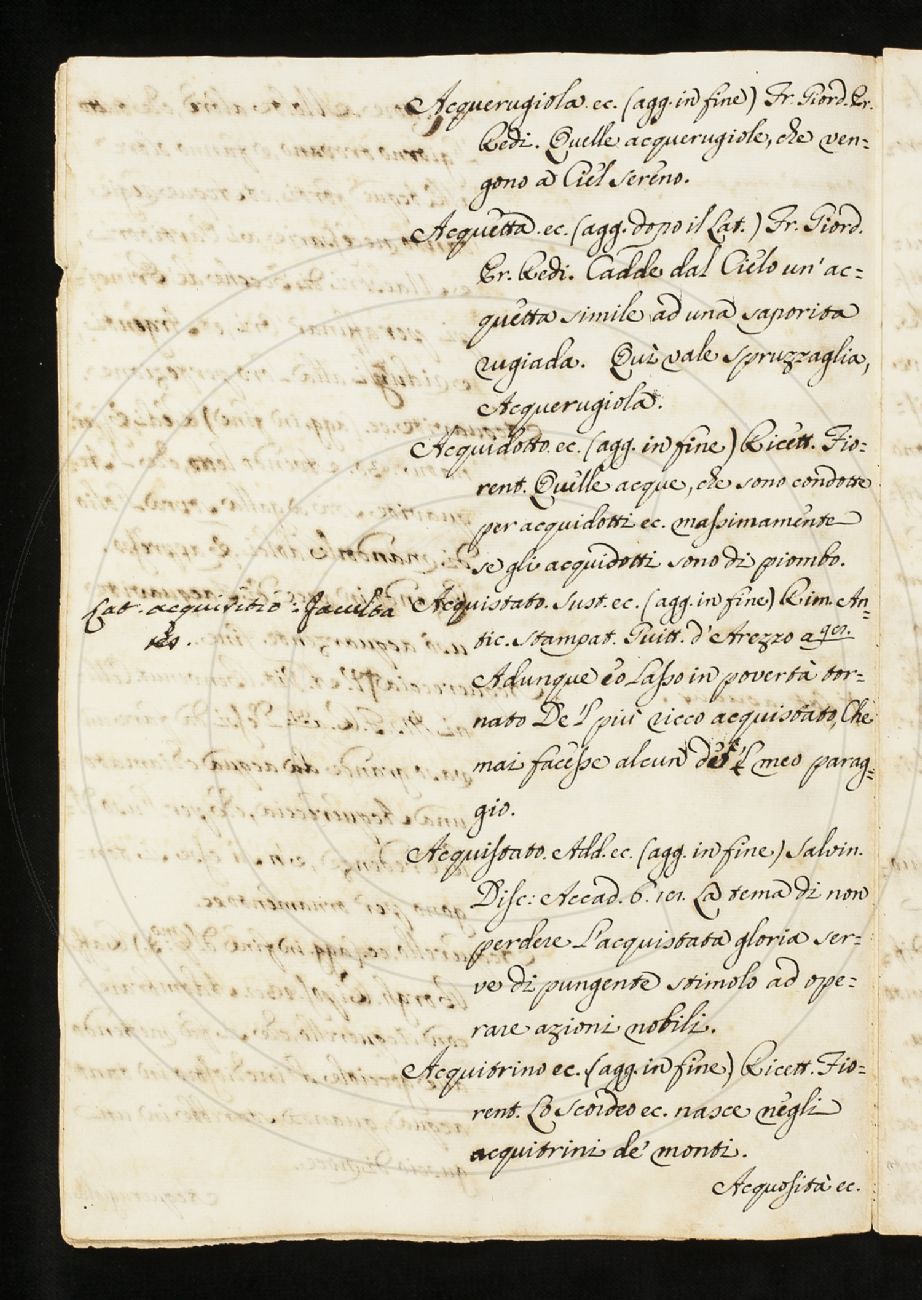 Acquerugiola. ec. (agg. in fine) Fr. Giord. Pr.
Redi. Quelle acquerugiole, che ven=
gono a Ciel sereno.
Acquetta. ec. (agg. dopo il Lat.) Fr. Giord.
Pr. Redi. Cadde dal Cielo un' ac=
quetta simile ad una saporita
rugiada. Quì vale Spruzzaglia,
Acquerugiola.
Acquidotto. ec. (agg. in fine) Ricett. Fio=
rent. Quelle acque, che sono condotte
per acquidotti ec. massimamente
se gli acquidotti sono di piombo.
Lat. acquisitio: Faculta
tes.
Acquistato. Sust. ec. (agg. in fine) Rim. An=
tic. Stampat. Guitt. d' Arezzo a
Adunque eo lasso in povertà tor=
nato De 'l più ricco acquistato, Che
mai facesse alcun 'l meo parag=
gio.
Acquistato. Add. ec. (agg. in fine) Salvin.
Disc: Accad. 6. 101. La tema di non
perdere l'acquistata gloria ser=
ve di pungente stimolo ad ope=
rare azioni nobili.
Acquitrino ec. (agg. in fine) Ricett. Fio=
rent. Lo Scordeo ec. nasce negli
acquitrini de' monti.
Acquosità ec.